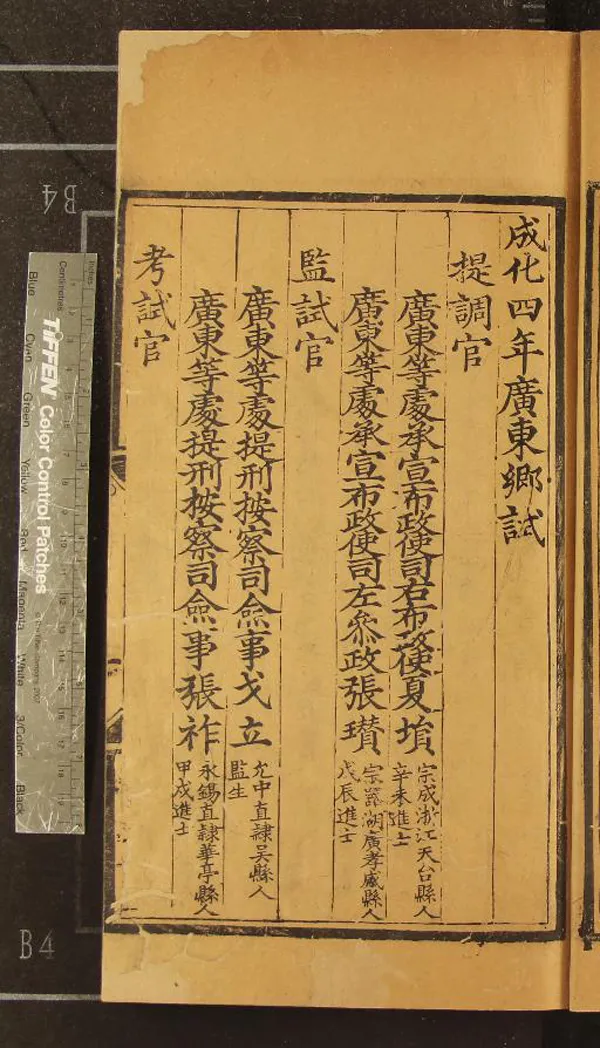 成化四年廣東鄉試
提調官
廣東等處承宣布政使司右布政使夏塤
宗成浙江天台縣人
辛未進士
廣東等處承宣布政使司左叅政張瓚
宗器湖廣孝感縣人
戊辰進士
監試官
廣東等處提刑按察司僉事戈立
允中直隸吳縣人
監生
廣東等處提刑按察司僉事張祚
永錫直隸華亭縣人
甲戌進士
考試官
B4
B4
Inches
Centimetres
TIFFEN Color Control Patches
© The Tiffen Company, 2007
Blue
Cyan
Green
Yellow
Red
Magenta
White
3/Color
Black